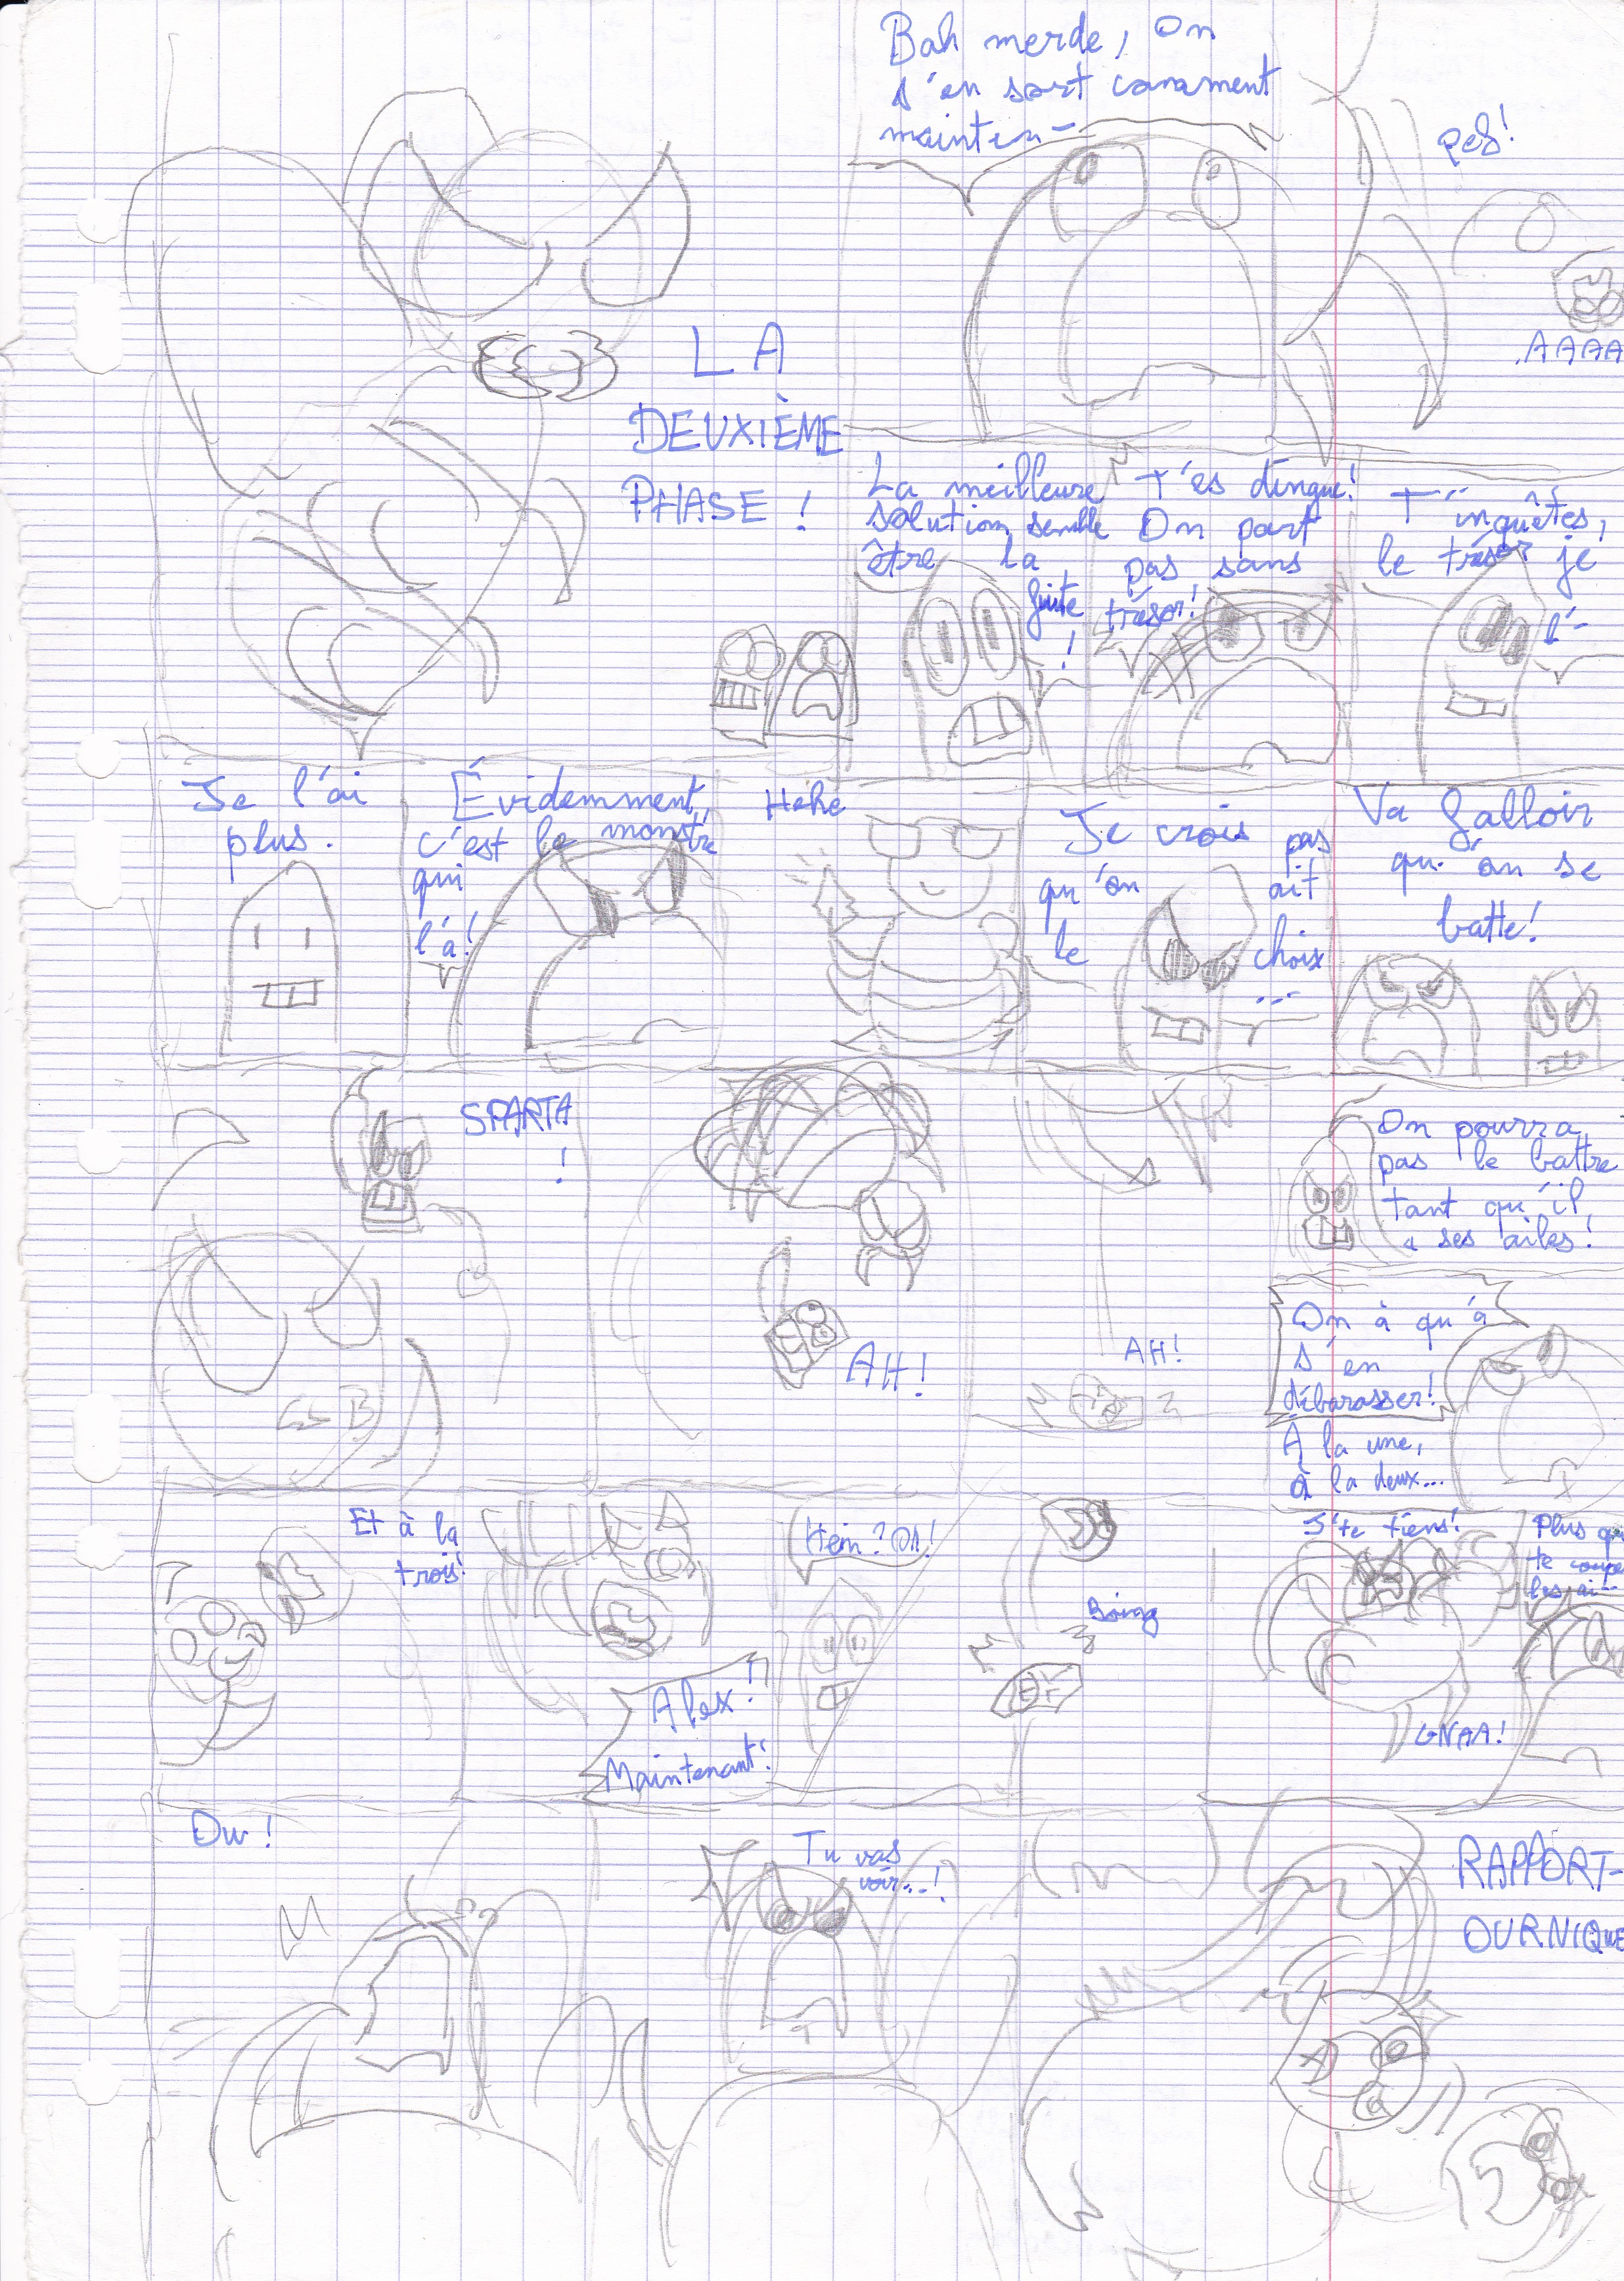 LA
DEUXIÈME
PHASE !
Bah merde, On
s'en sort
mainten-
AAAA
La meilleure
solution semble
être la
fuite
!
T'es dingue!
On part
pas sans
trésor!
T'inquiètes,
le trésor je
l'-
Je l'ai
plus.
Évidemment,
c'est le monstre
qui
l'a!
Héhé
Je crois pas
qu'on ait
le choix
...
Va falloir
qu'on se
batte!
SPARTA
!
AH!
AH!
On pourra
pas le battre
tant qu'il
a ses ailes!
On à qu'à
s'en
débarasser!
À la une,
à la deux...
Et à la
trois!
Alex!
Maintenant!
Hein? OK!
Boing
J'te tiens!
GNAA!
Plus qu
te coupe
les ai--
Ow!
Tu vas
voir...!
RAPPORT-
OURNIQUE